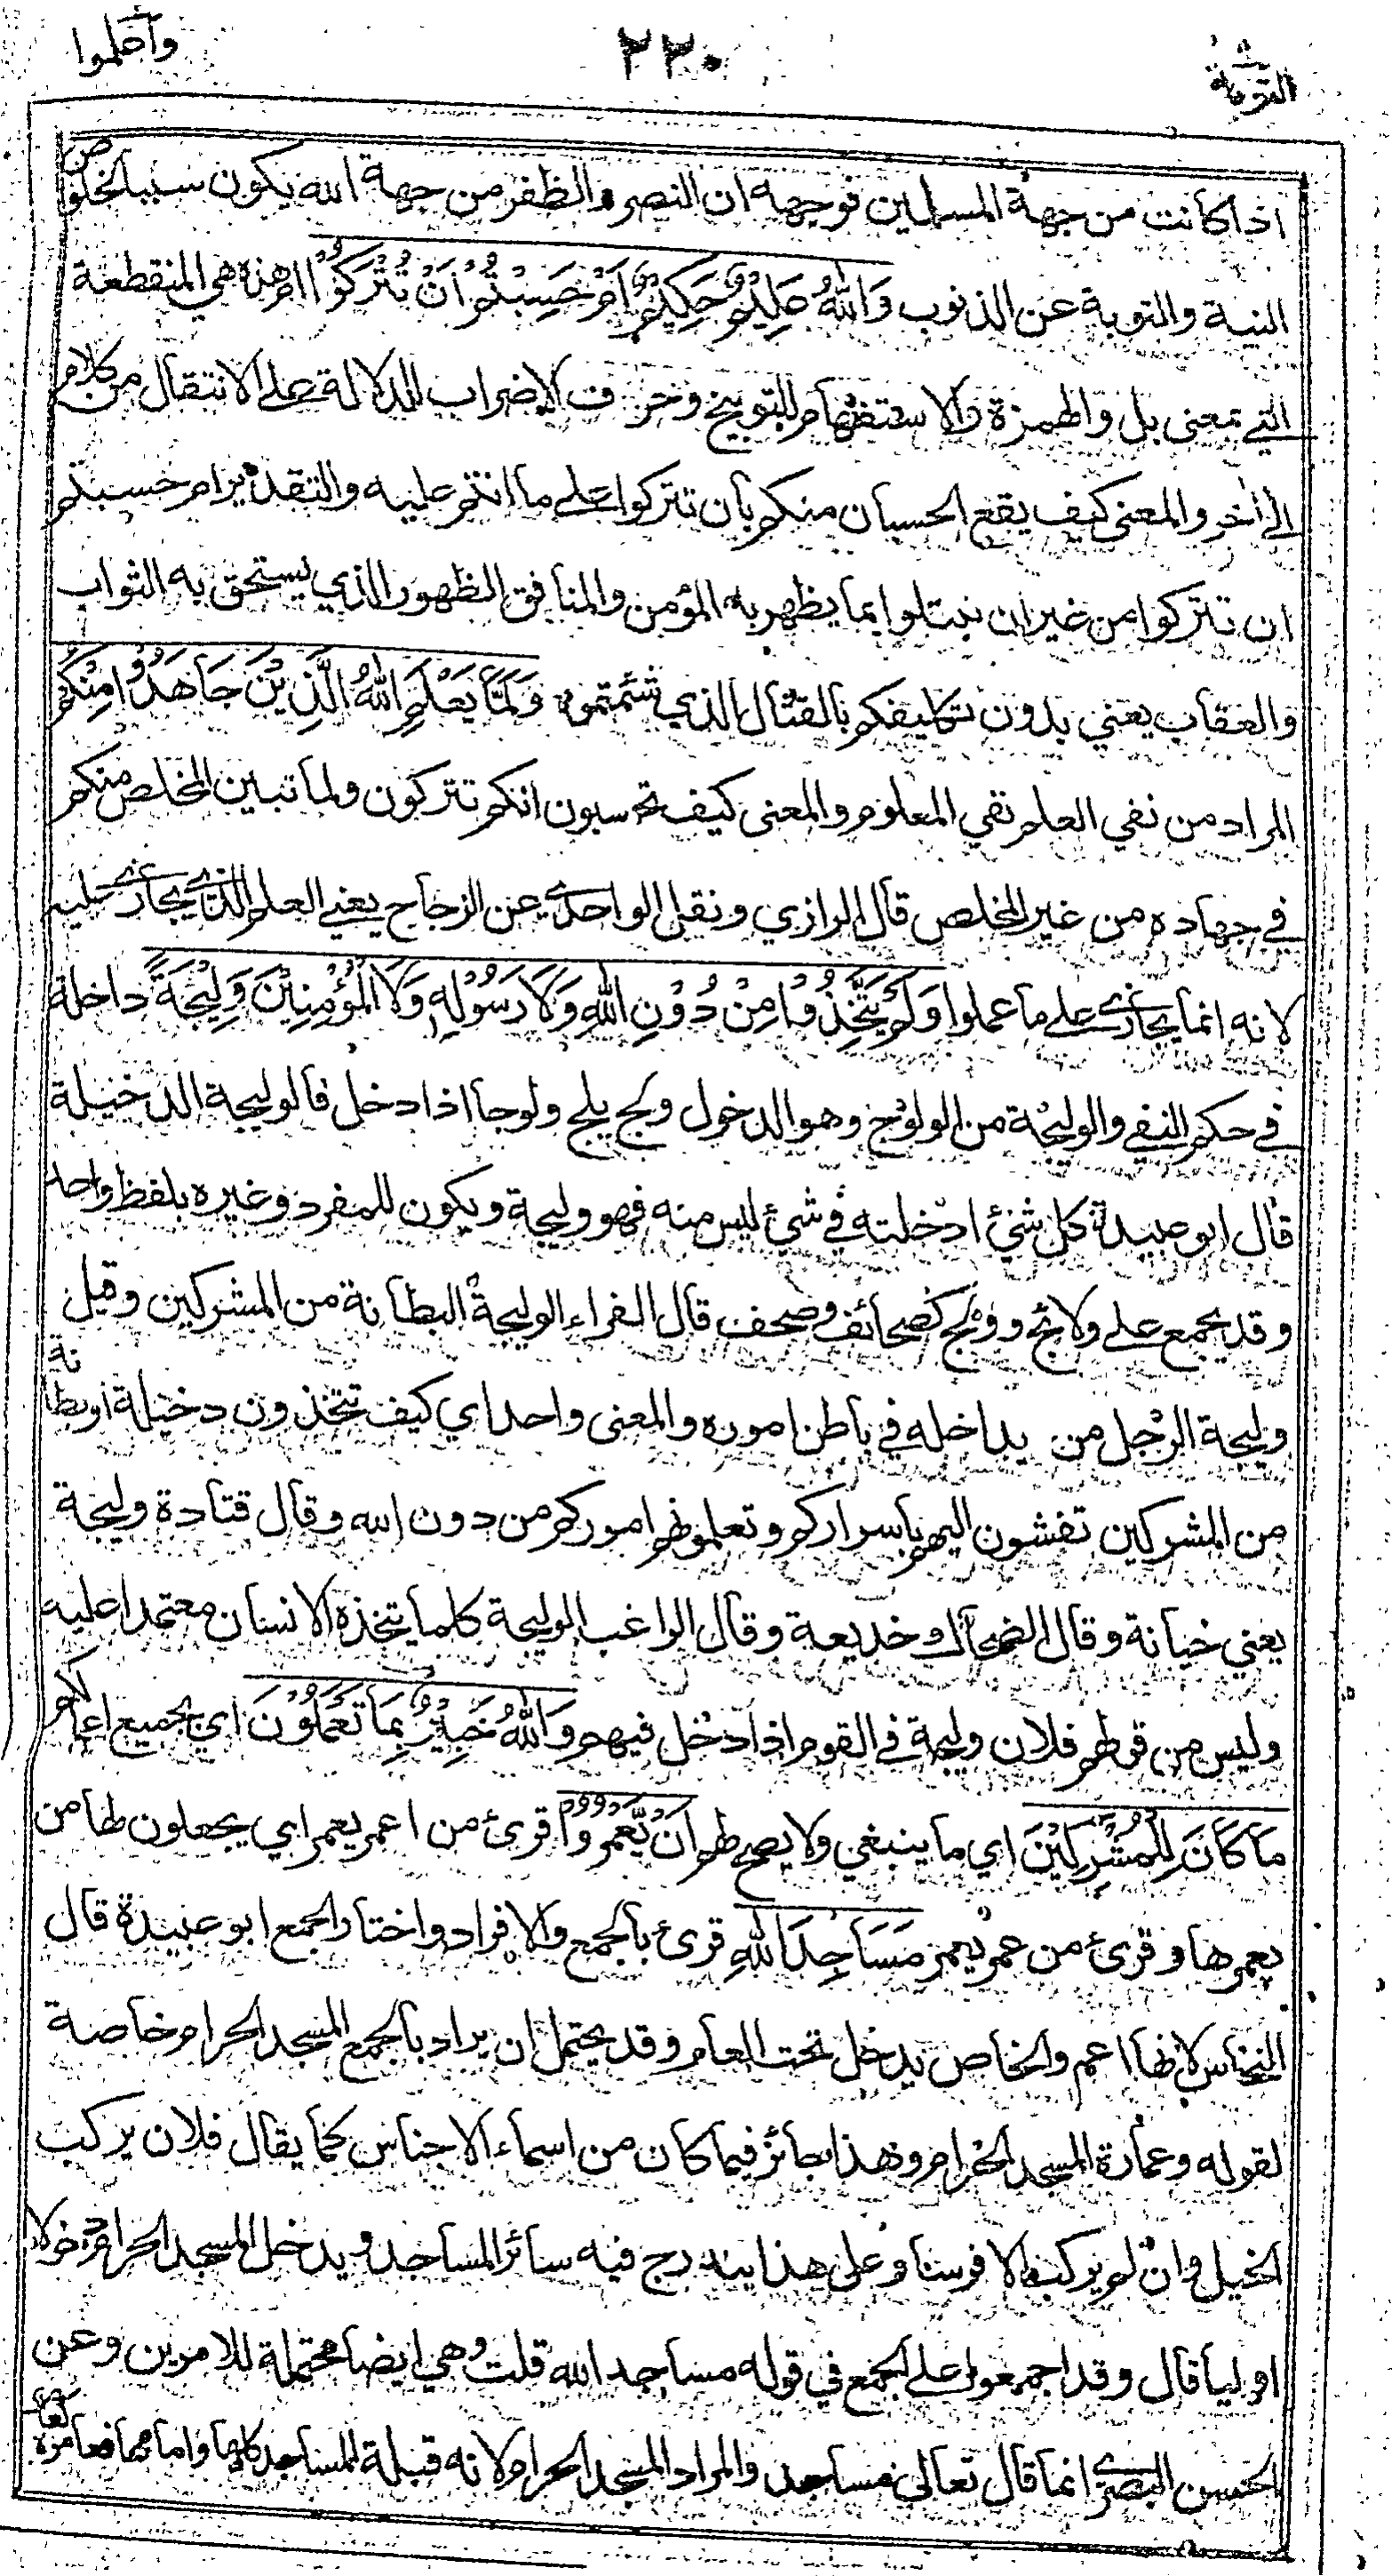 واعلموا
٢٢٠
التوبة
اذا كانت من جهة المسلمين فوجهه ان النصر والظفر من جهة الله يكون سببا لخلوص
النية والتوبة عن الذنوب وَاللّٰهُ عَلِيْمٌ حَكِيْمٌ اَمْ حَسِبْتُمْ اَنْ تُتْرَكُوْا ام هذه هي المنقطعة
التي بمعنى بل والهمزة والاستفهام للتوبيخ وحرف الاضراب للدلالة على الانتقال من كلام
الى اخر والمعنى كيف يقع الحسبان منكم بان تتركوا على ما انتم عليه والتقدير ام حسبتم
ان تتركوا من غير ان تبتلوا بما يظهر به المؤمن والمنافق الظهور الذي يستحق به الثواب
والعقاب يعني بدون تكليفكم بالقتال الذي سئمتموه وَلَمَّا يَعْلَمِ اللّٰهُ الَّذِيْنَ جَاهَدُوْا مِنْكُمْ
المراد من نفي العلم نفي المعلوم والمعنى كيف تحسبون انكم تتركون ولما تبين المخلص منكم
في جهاده من غير المخلص قال الرازي ونقل الواحدي عن الزجاج يعني العلم الذي يجازى عليه
لانه انما يجازى على ما عملوا وَلَمْ يَتَّخِذُوْا مِنْ دُوْنِ اللّٰهِ وَلَا رَسُوْلِهٖ وَلَا الْمُؤْمِنِيْنَ وَلِيْجَةً داخلة
في حكم النفي والوليجة من الولوج وهو الدخول ولج يلج ولوجا اذا دخل فالوليجة الدخيلة
قال ابو عبيدة كل شئ ادخلته في شئ ليس منه فهو وليجة ويكون للمفرد وغيره بلفظ واحد
وقد يجمع على ولائج وولج كصحائف وصحف قال الفراء الوليجة البطانة من المشركين وقيل
وليجة الرجل من يداخله في باطن اموره والمعنى واحد اي كيف تتخذون دخيلة او بطانة
من المشركين تفشون اليهم باسراركم وتعلمونهم اموركم من دون الله وقال قتادة وليجة
يعني خيانة وقال الضحاك وخديعة وقال الراغب الوليجة كلما يتخذه الانسان معتمدا عليه
وليس من قولهم فلان وليجة في القوم اذا دخل فيهم وَاللّٰهُ خَبِيْرٌ بِمَا تَعْمَلُوْنَ اي بجميع اعمالكم
مَا كَانَ لِلْمُشْرِكِيْنَ اي ما ينبغي ولا يصح لهم اَنْ يَّعْمُرُوْا قرئ من اعمر يعمر اي يجعلون لها من
يعمرها وقرئ من عمر يعمر مَسَاجِدَ اللّٰهِ قرئ بالجمع والافراد واختار الجمع ابو عبيدة قال
النحاس لانها اعم والخاص يدخل تحت العام وقد يحتمل ان يراد بالجمع المسجد الحرام خاصة
لقوله وعمارة المسجد الحرام وهذا جائز فيما كان من اسماء الاجناس كما يقال فلان يركب
الخيل وان لم يركب الا فرسا وعلى هذا يندرج فيه سائر المساجد ويدخل المسجد الحرام دخولا
اوليا قال وقد اجمعوا على الجمع في قوله مساجد الله قلت وهي ايضا محتملة للامرين وعن
الحسن البصري انما قال تعالى مساجد والمراد المسجد الحرام لانه قبلة المساجد كلها وامامها فعامره كعامر